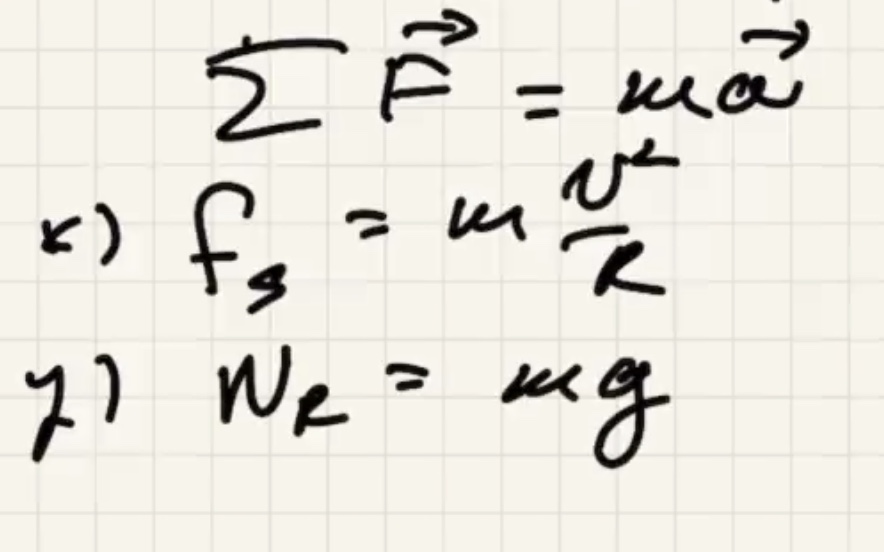 ∑ F⃗ = ma⃗
x) fₛ = m v²/R
y) N_R = mg